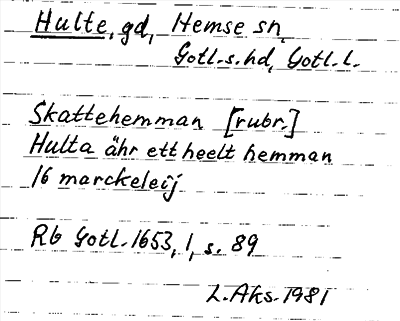 Hulte, gd, Hemse sn,
Gotl.s.hd, Gotl.l.
Skattehemman [rubr.]
Hulta ähr ett heelt hemman
16 marckeleij
Rb Gotl. 1653, 1, s. 89
L.Aks. 1981